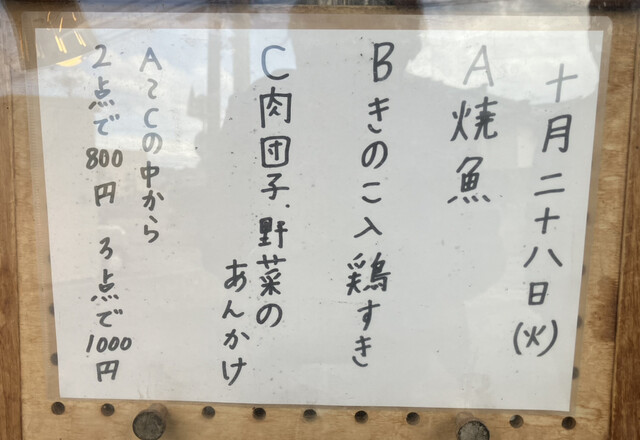 十月二十八日(火)
A 焼魚
B きのこ入鶏すき
C 肉団子、野菜の
あんかけ
A~Cの中から
2点で800円 3点で1000円